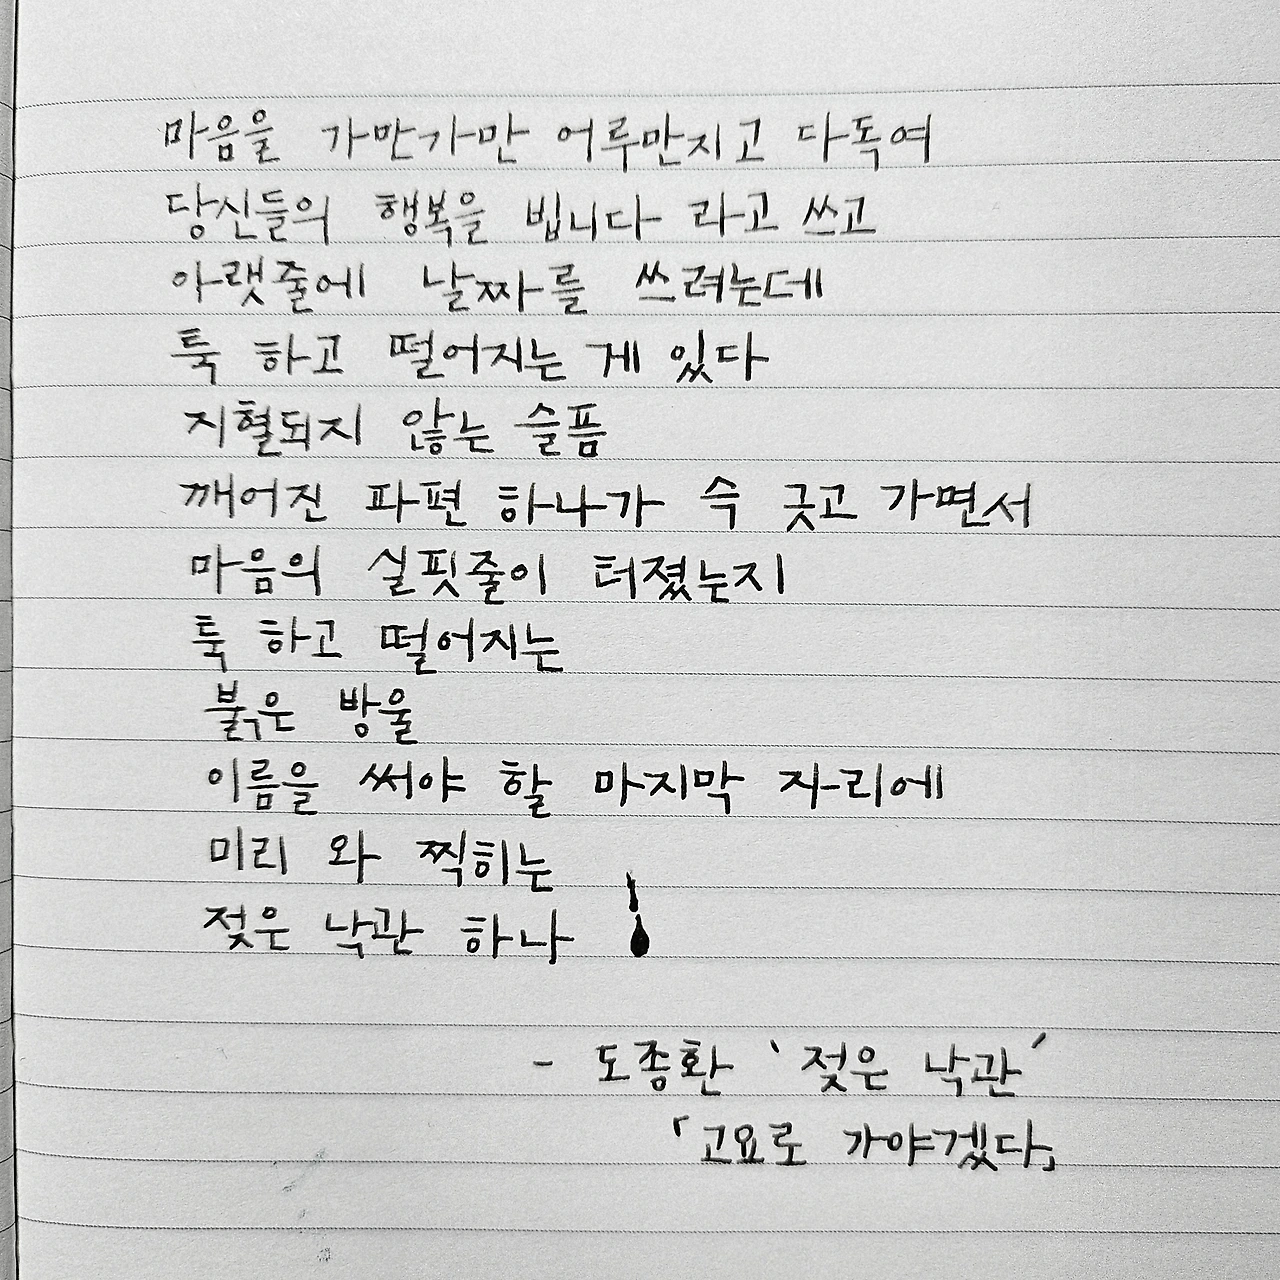 마음을 가만가만 어루만지고 다독여
당신들의 행복을 빕니다 라고 쓰고
아랫줄에 날짜를 쓰려는데
툭 하고 떨어지는 게 있다
지혈되지 않는 슬픔
깨어진 파편 하나가 슥 긋고 가면서
마음의 실핏줄이 터졌는지
툭 하고 떨어지는
붉은 방울
이름을 써야 할 마지막 자리에
미리 와 찍히는
젖은 낙관 하나
- 도종환 '젖은 낙관'
「고요로 가야겠다」